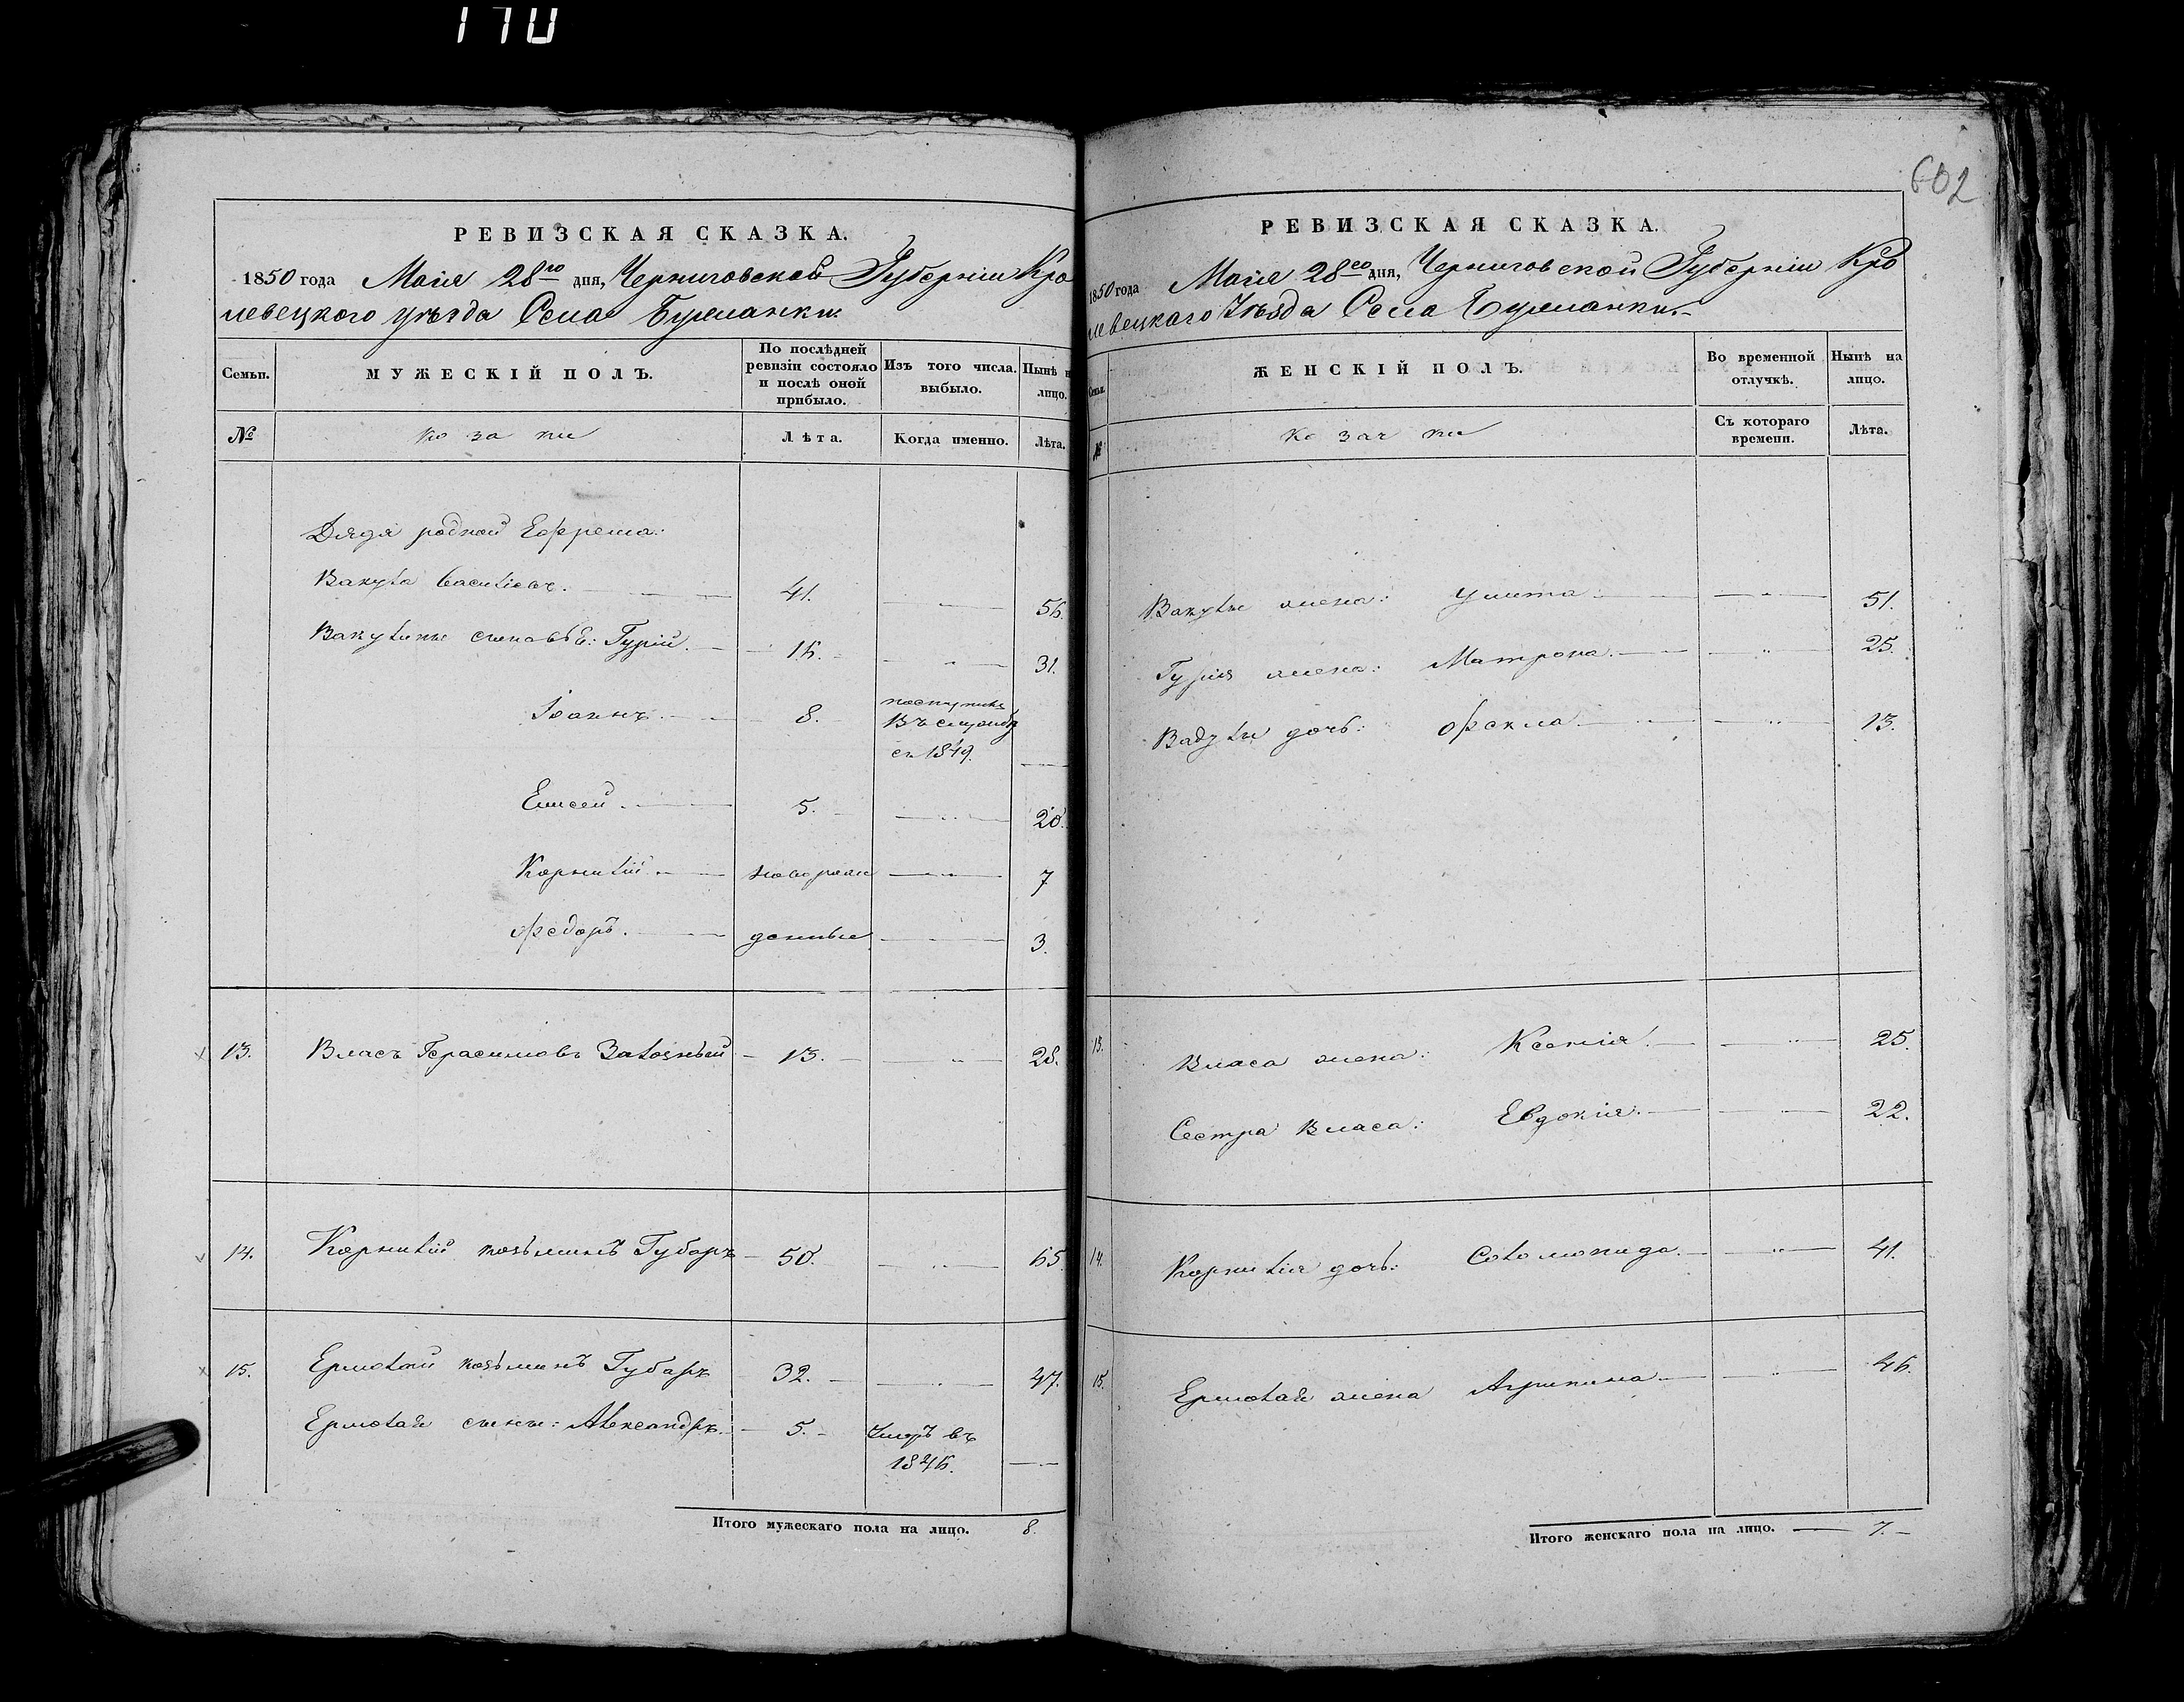 170
РЕВИЗСКАЯ СКАЗКА.
1850 года Маія 28го дня, Черниговской Губерніи Кро
левецкого уѣзда Села Бурманки.
Семьи. МУЖЕСКІЙ ПОЛЪ. По послѣдней ревизіи состояло и послѣ оной прибыло. Изъ того числа выбыло. Нынѣ на лицо.
№ козаки Лѣта. Когда именно. Лѣта.
Дядя родной Ефрема:
Вакула Васильевъ. 41. 56.
Вакулины сыновьѣ: Гурій. 16. 31.
Іоаннъ. 8. 
въ 1849.
Елисей. 5. 20.
Корнилій. новорож 7
Федоръ. денные 3.
13. Власъ Герасимовъ 13. 28.
14. Корнилій козьминъ Губарь 50. 65.
15. Ермолай козьминъ Губарь 32. 47.
Ермолая сынъ: Александръ. 5. Умеръ въ
1846.
Итого мужескаго пола на лицо. 8.
602
РЕВИЗСКАЯ СКАЗКА.
1850 года Маія 28го дня, Черниговской Губерніи Кро
левецкаго Уѣзда Села Бурманки.
Семьи. ЖЕНСКІЙ ПОЛЪ. Во временной отлучкѣ. Нынѣ на лицо.
№ козачки Съ котораго времени. Лѣта.
Вакулы жена: Улита 51.
Гурія жена: Матрона. 25.
Вакулы дочь: Фекла 13.
13. Власа жена: Ксенія. 25.
Сестра Власа: Евдокія. 22.
14. Корнилія дочь: Соломонида. 41.
15. Ермолая жена Агрипина 46.
Итого женскаго пола на лицо. 7.